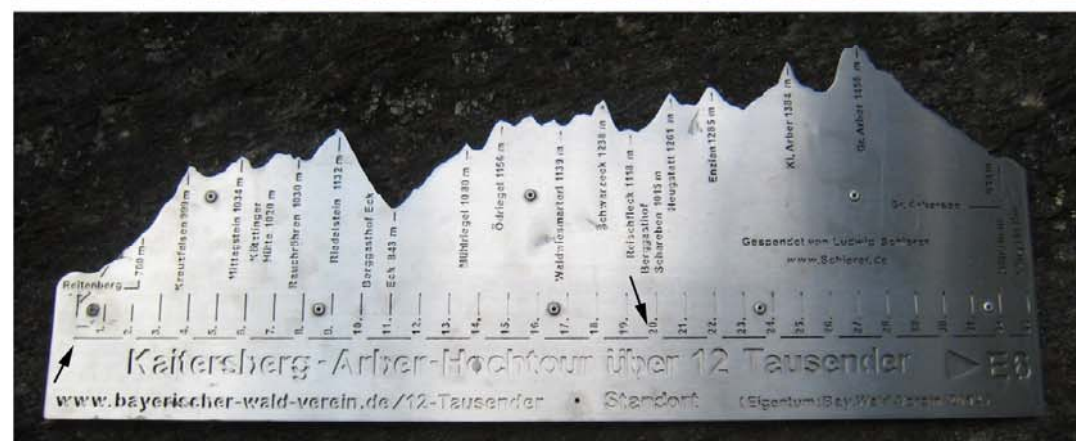 Reitenberg
700 m
Kreuzfelsen 999 m
Mittagstein 1034 m
Kötztinger
Hütte 1020 m
Rauchröhren 1030 m
Riedelstein 1132 m
Berggasthof Eck
Eck 843 m
Mühlriegel 1080 m
Ödriegel 1156 m
Waldwiesmarterl 1139 m
Schwarzeck 1238 m
Reischfleck 1118 m
Berggasthof
Schareben 1015 m
Heugstatt 1261 m
Enzian 1285 m
Kl. Arber 1384 m
Gr. Arber 1456 m
Gespendet von Ludwig Schierer
www.Schierer.de
1. 2. 3. 4. 5. 6. 7. 8. 9. 10. 11. 12. 13. 14. 15. 16. 17. 18. 19. 20. 21. 22. 23. 24. 25. 26. 27. 28. 29. 30. 31.
Kaitersberg-Arber-Hochtour über 12 Tausender E6
www.bayerischer-wald-verein.de/12-Tausender • Standort (Eigentum: Bay. Wald-Verein